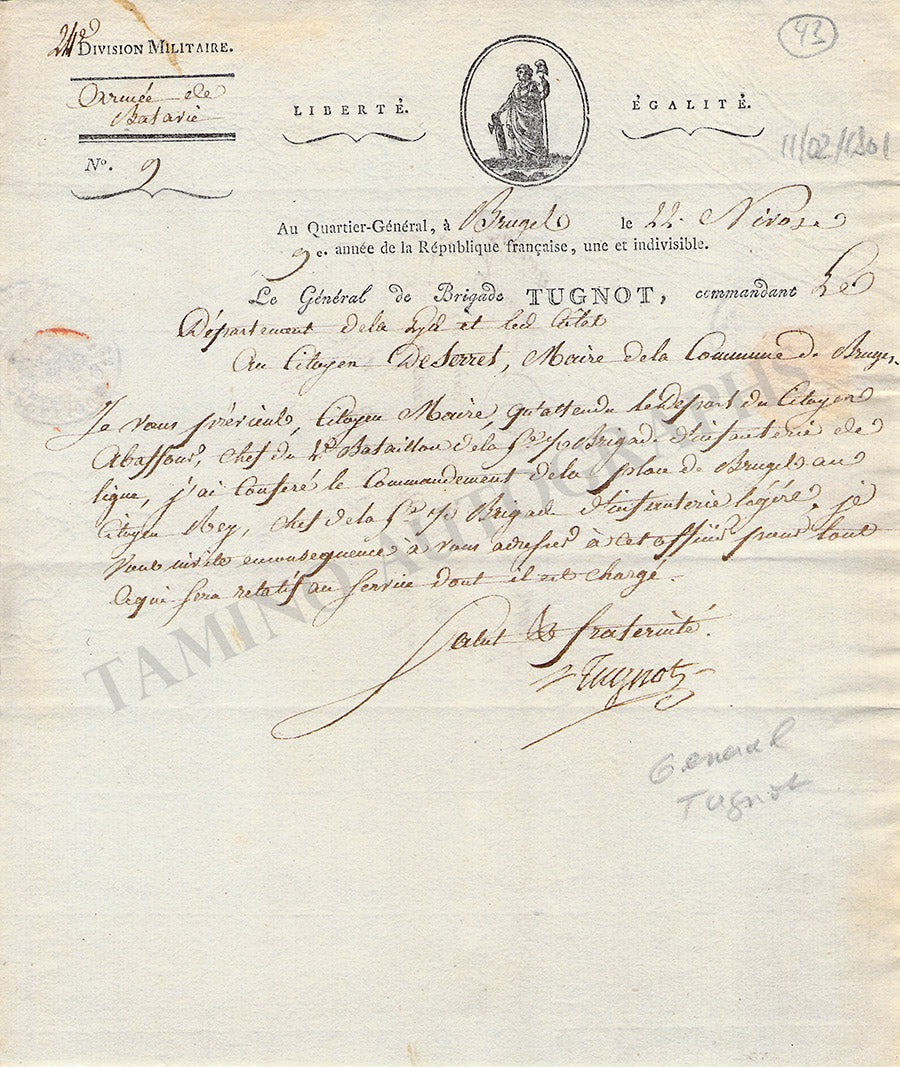 24e DIVISION MILITAIRE.
Armée de
Batavie
Nº. 9
LIBERTÉ.
ÉGALITÉ.
43
11/02/1801
Au Quartier-Général, à Bruges le 22. Nivose
9e. année de la République française, une et indivisible.
Le Général de Brigade TUGNOT, commandant Le
Département de la Lys et les Côtes
Au Citoyen DeSerret, Maire de la Commune de Bruges.
Je vous préviens, Citoyen Maire, qu'attendu le départ du Citoyen
chef du Bataillon de la Brigade d'infanterie de
ligne, j'ai conferé le Commandement de la place de Bruges au
Citoyen Rey, chef de la Brigade d'infanterie légère, je
vous invite en consequence à vous adresser à cet officier pour tout
ce qui sera relatif au service dont il est chargé.
Salut & fraternité.
Tugnot
General
Tugnot
TAMINO AUTOGRAPHS